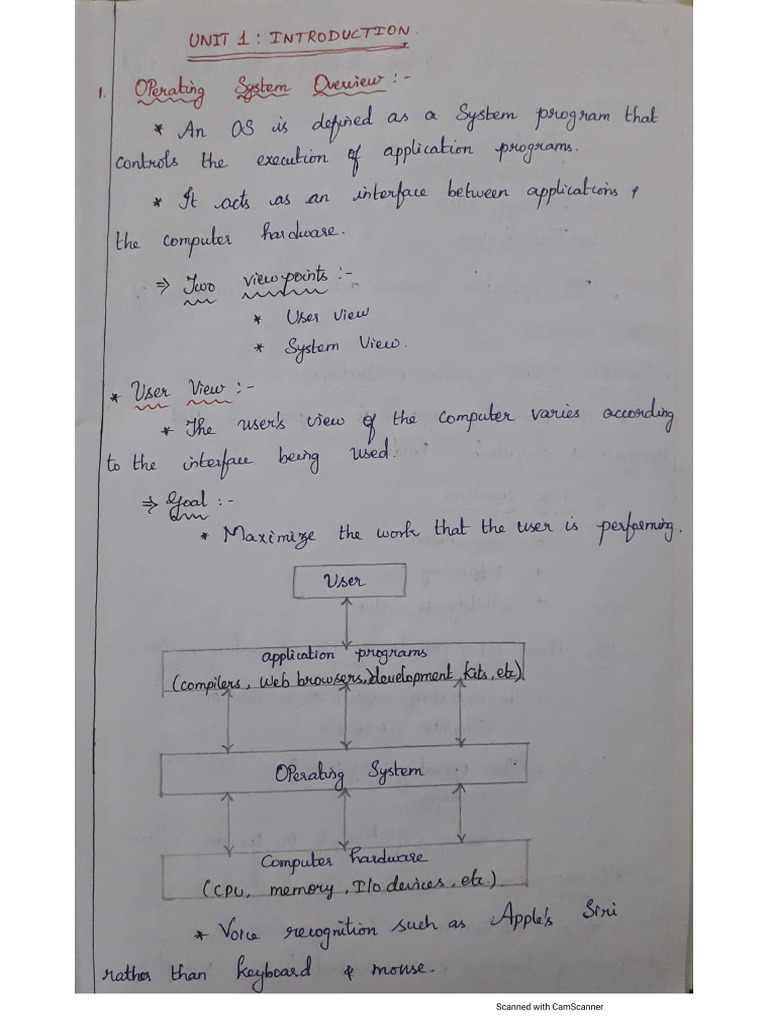 UNIT 1 : INTRODUCTION.
1. Operating System Overview :-
* An OS is defined as a System program that
controls the execution of application programs.
* It acts as an interface between applications &
the computer hardware.
⇒ Two viewpoints :-
* User view
* System View.
* User View :-
* The user's view of the computer varies according
to the interface being used.
⇒ Goal :-
* Maximize the work that the user is performing.
User
application programs
(compilers, web browsers, development kits, etc)
Operating System
Computer hardware
(CPU, memory, I/o devices, etc.)
* Voice recognition such as Apple's Siri
rather than keyboard & mouse.
Scanned with CamScanner